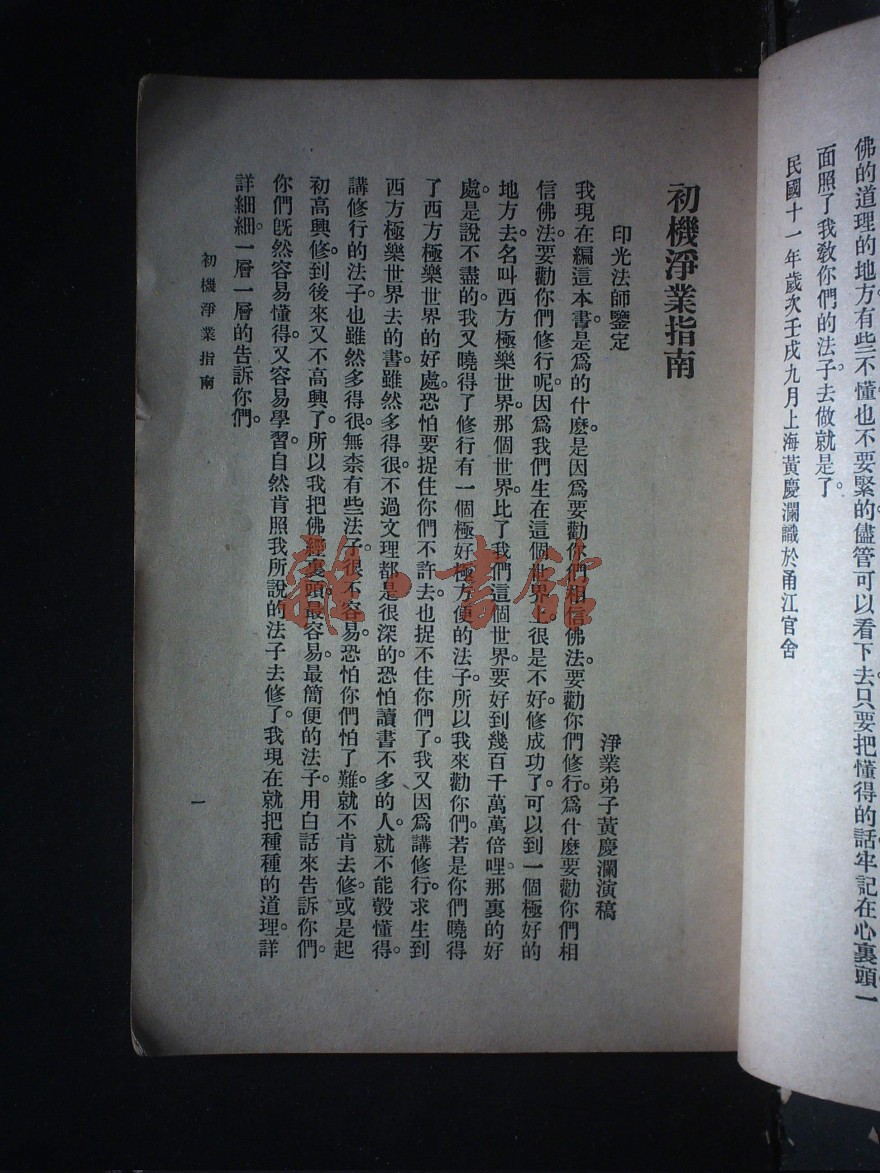 佛的道理的地方有些不懂也不要緊的儘管可以看下去只要把懂得的話牢記在心裏頭一
面照了我敎你們的法子去做就是了。
民國十一年歲次壬戌九月上海黃慶瀾識於甬江官舍
初機淨業指南
印光法師鑒定
淨業弟子黃慶瀾演稿
我現在編這本書。是爲的什麼。是因爲要勸你們相信佛法。要勸你們修行。爲什麼要勸你們相
信佛法。要勸你們修行呢。因爲我們生在這個世界上。很是不好。修成功了。可以到一個極好的
地方去。名叫西方極樂世界。那個世界。比了我們這個世界。要好到幾百千萬萬倍哩。那裏的好
處。是說不盡的。我又曉得了修行有一個極好極方便的法子。所以我來勸你們。若是你們曉得
了西方極樂世界的好處。恐怕要捉住你們不許去。也捉不住你們了。我又因爲講修行。求生到
西方極樂世界去的書。雖然多得很。不過文理都是很深的。恐怕讀書不多的人。就不能彀懂得。
講修行的法子。也雖然多得很。無柰有些法子。很不容易。恐怕你們怕了難。就不肯去修。或是起
初高興修。到後來又不高興了。所以我把佛經裏頭。最容易。最簡便的法子。用白話來告訴你們。
你們旣然容易懂得。又容易學習。自然肯照我所說的法子去修了。我現在就把種種的道理。詳
詳細細。一層一層的告訴你們。
初機淨業指南
一
雜·書館